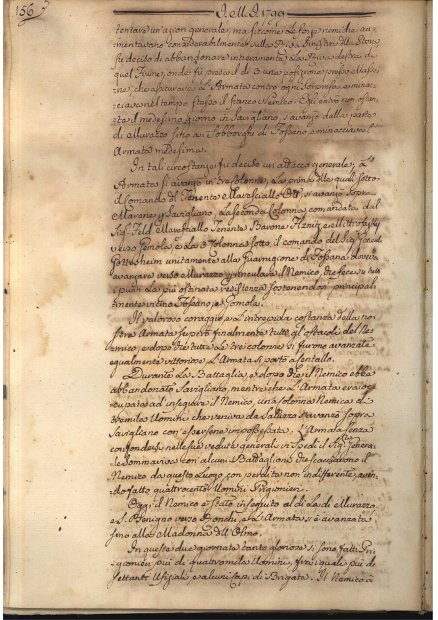 156
Nell. 1799
tentare un'azion generale, ma siccome le forze nemiche au-
mentavano considerabilmente sulla Riva sinistra della Stura,
fu deciso di abbandonare intieramente la Riva destra di
quel Fiume, onde fu presa il dì 3 una posizione presso Maffe-
che assicurava l'Armata contro ogni sorpresa, e minac-
ciava nel tempo stesso il fianco Nemico. Egli entrò non ostan-
te il medesimo giorno in Savigliano, s'avanzò dalla parte
di Murazzo sino a' Sobborghi di Fossano, e minacciava l'
Armata medesima.
In tali circostanze fu deciso un attacco generale. L'
Armata si avanzò in tre colonne. La prima delle quali sotto
il comando del Tenente Maresciallo Ott, si avanzò sopra
Marene, e Savigliano. La seconda Colonna comandata dal
Sig. Feld Maresciallo Tenente Barone
verso Genola, e la 3 Colonna sotto il comando del Sig. General
Gottesheim unitamente alla Guarnigione di Fossano doveva
avanzare verso Murazzo, respingere il Nemico, che fece su tutti
i punti la più ostinata resistenza sostenendosi principal-
mente vicino Fossano, e Genola.
Il valoroso coraggio, e l'intrepida costanza della no-
stra Armata superò finalmente tutti gl'ostacoli del Ne-
mico, e dopo che tutte le tre colonne si furono avanzate
egualmente vittoriose l'Armata si portò a Centallo.
Durante la Battaglia, e dopo che il Nemico ebbe
abbandonato Savigliano, mentre che l'Armata era oc-
cupata ad inseguire il Nemico, una colonna Nemica di
tremila Uomini che veniva da Saluzzo s'avanzò sopra
Savigliano con essersene impossessata. L'Armata senza
confondersi nelle sue vedute generali vi spedì il Sig. General
de Sommariva con alcuni Battaglioni che scacciarono il
Nemico da questo Luogo con perdita non indifferente, aven-
do fatto quattrocento Uomini Prigionieri.
Oggi il Nemico è stato inseguito al di là di Murazzo,
e S. Benigno verso Ronchi, e l'Armata s'è avanzata
fino alla Madonna dell'Olmo.
In queste due giornate tanto gloriose si sono fatti Pri-
gionieri più di quattromila Uomini, fra i quali più di
settanta Ufiziali e alcuni Capi di Brigata. Il Nemico à